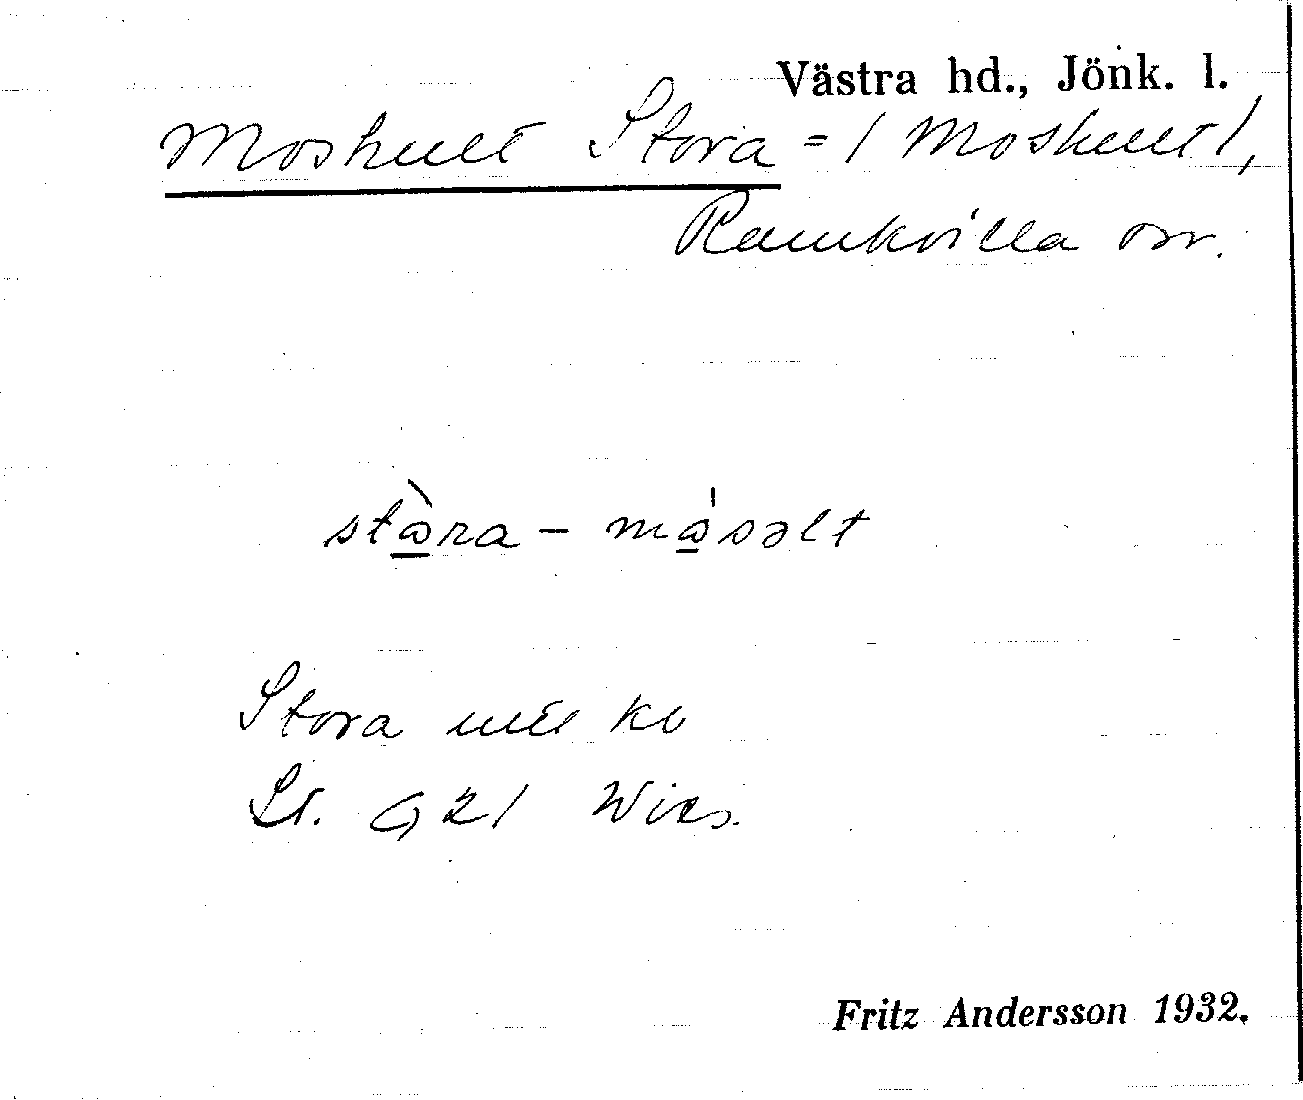 Västra hd., Jönk. l.
Moshult Stora = / Moshult /,
Ramkvilla sn.
stàra - måsəlt
Stora
St. G 21
Fritz Andersson 1932.